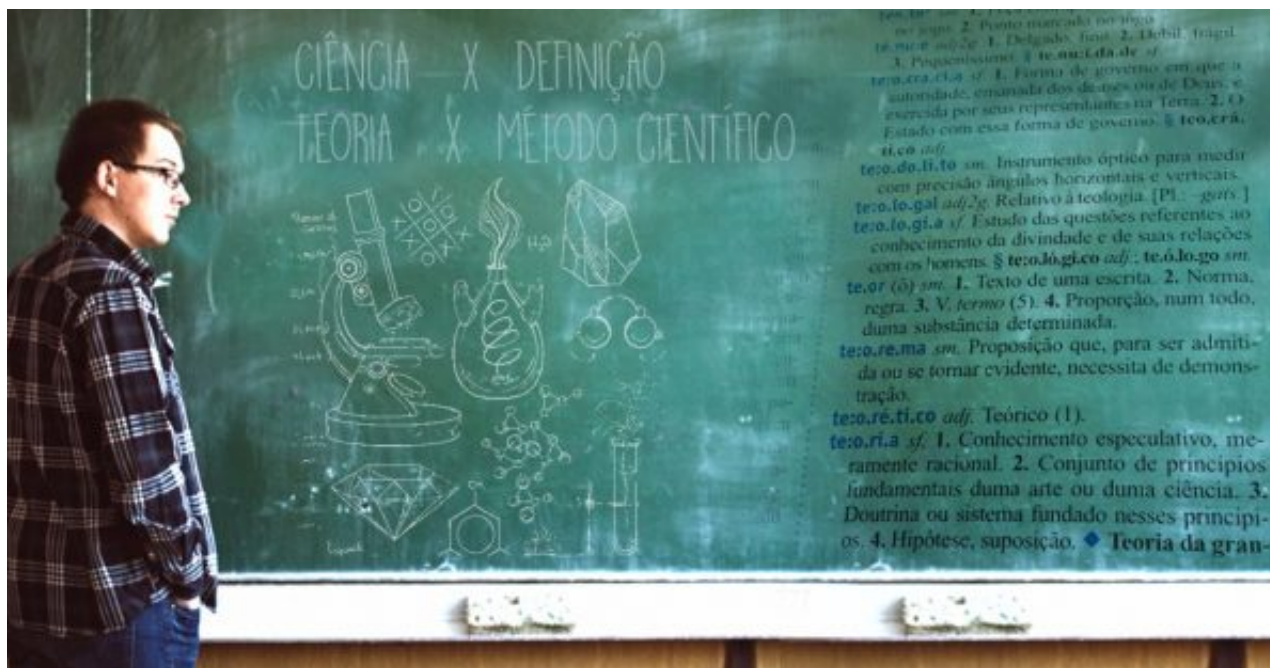 CIÊNCIA X DEFINIÇÃO
TEORIA X MÉTODO CIENTÍFICO
H₂O
no jogo. 2. Ponto marcado no jogo
tê.nu:e adj2g. 1. Delgado, fino. 2. Débil, frágil.
3. Pequeníssimo. § te.nu:i.da.de sf.
te:o.cra.ci.a sf. 1. Forma de governo em que a
autoridade, emanada dos deuses ou de Deus, é
exercida por seus representantes na Terra. 2. O
Estado com essa forma de governo. § teo.crá.
ti.co adj.
te:o.do.li.to sm. Instrumento óptico para medir
com precisão ângulos horizontais e verticais.
te:o.lo.gal adj2g. Relativo à teologia. [Pl.: –gais.]
te:o.lo.gi.a sf. Estudo das questões referentes ao
conhecimento da divindade e de suas relações
com os homens. § te:o.ló.gi.co adj.; te.ó.lo.go sm.
te.or (ô) sm. 1. Texto de uma escrita. 2. Norma,
regra. 3. V. termo (5). 4. Proporção, num todo,
duma substância determinada.
te:o.re.ma sm. Proposição que, para ser admiti-
da ou se tornar evidente, necessita de demons-
tração.
te:o.ré.ti.co adj. Teórico (1).
te:o.ri.a sf. 1. Conhecimento especulativo, me-
ramente racional. 2. Conjunto de princípios
fundamentais duma arte ou duma ciência. 3.
Doutrina ou sistema fundado nesses princípi-
os. 4. Hipótese, suposição. ◆ Teoria da gran-